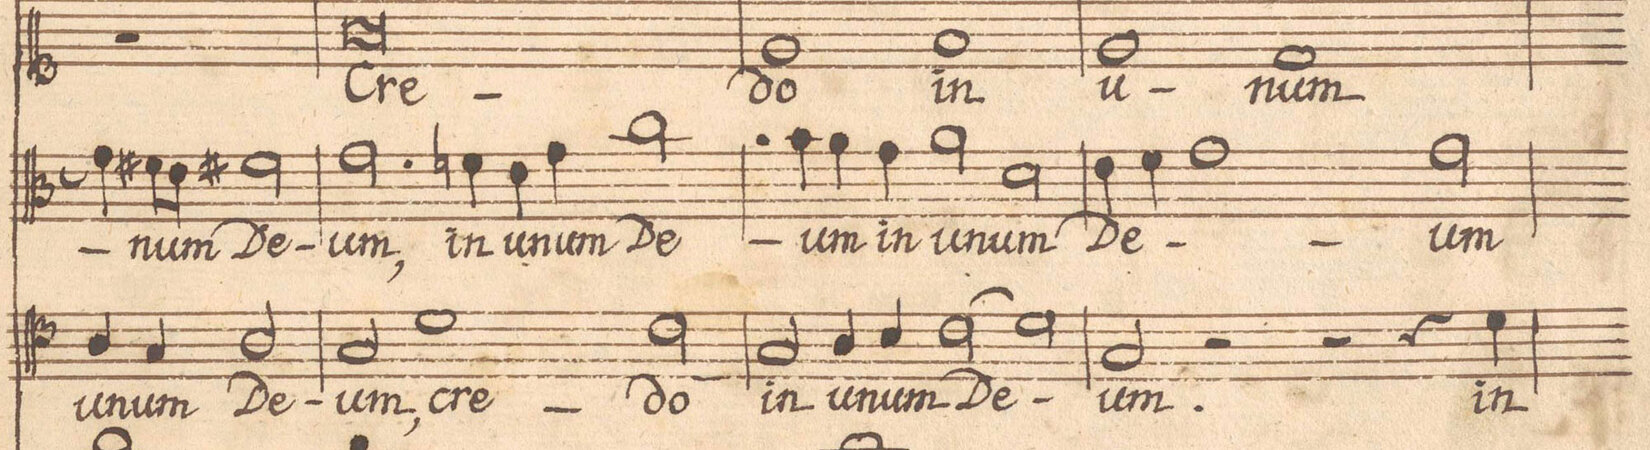 Cre - do in u - num
- num De - um, in unum De - um in unum De - - um
unum De - um, cre - do in unum De - um. in